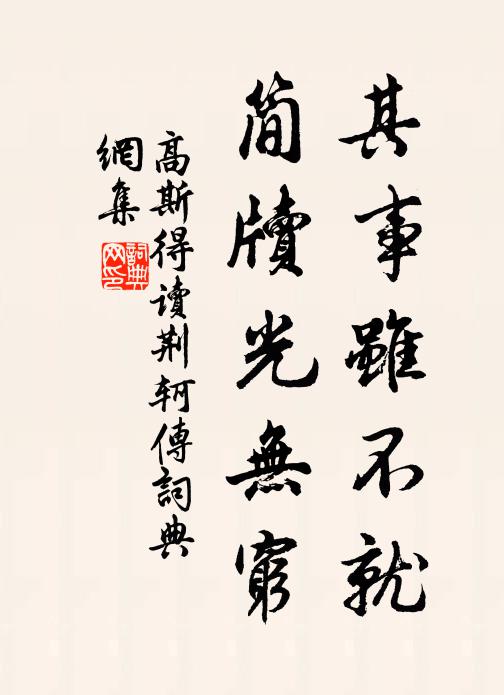 其事雖不就
簡牘光無窮
高斯得讀荆軻傳詞典
網集
詞典
网印